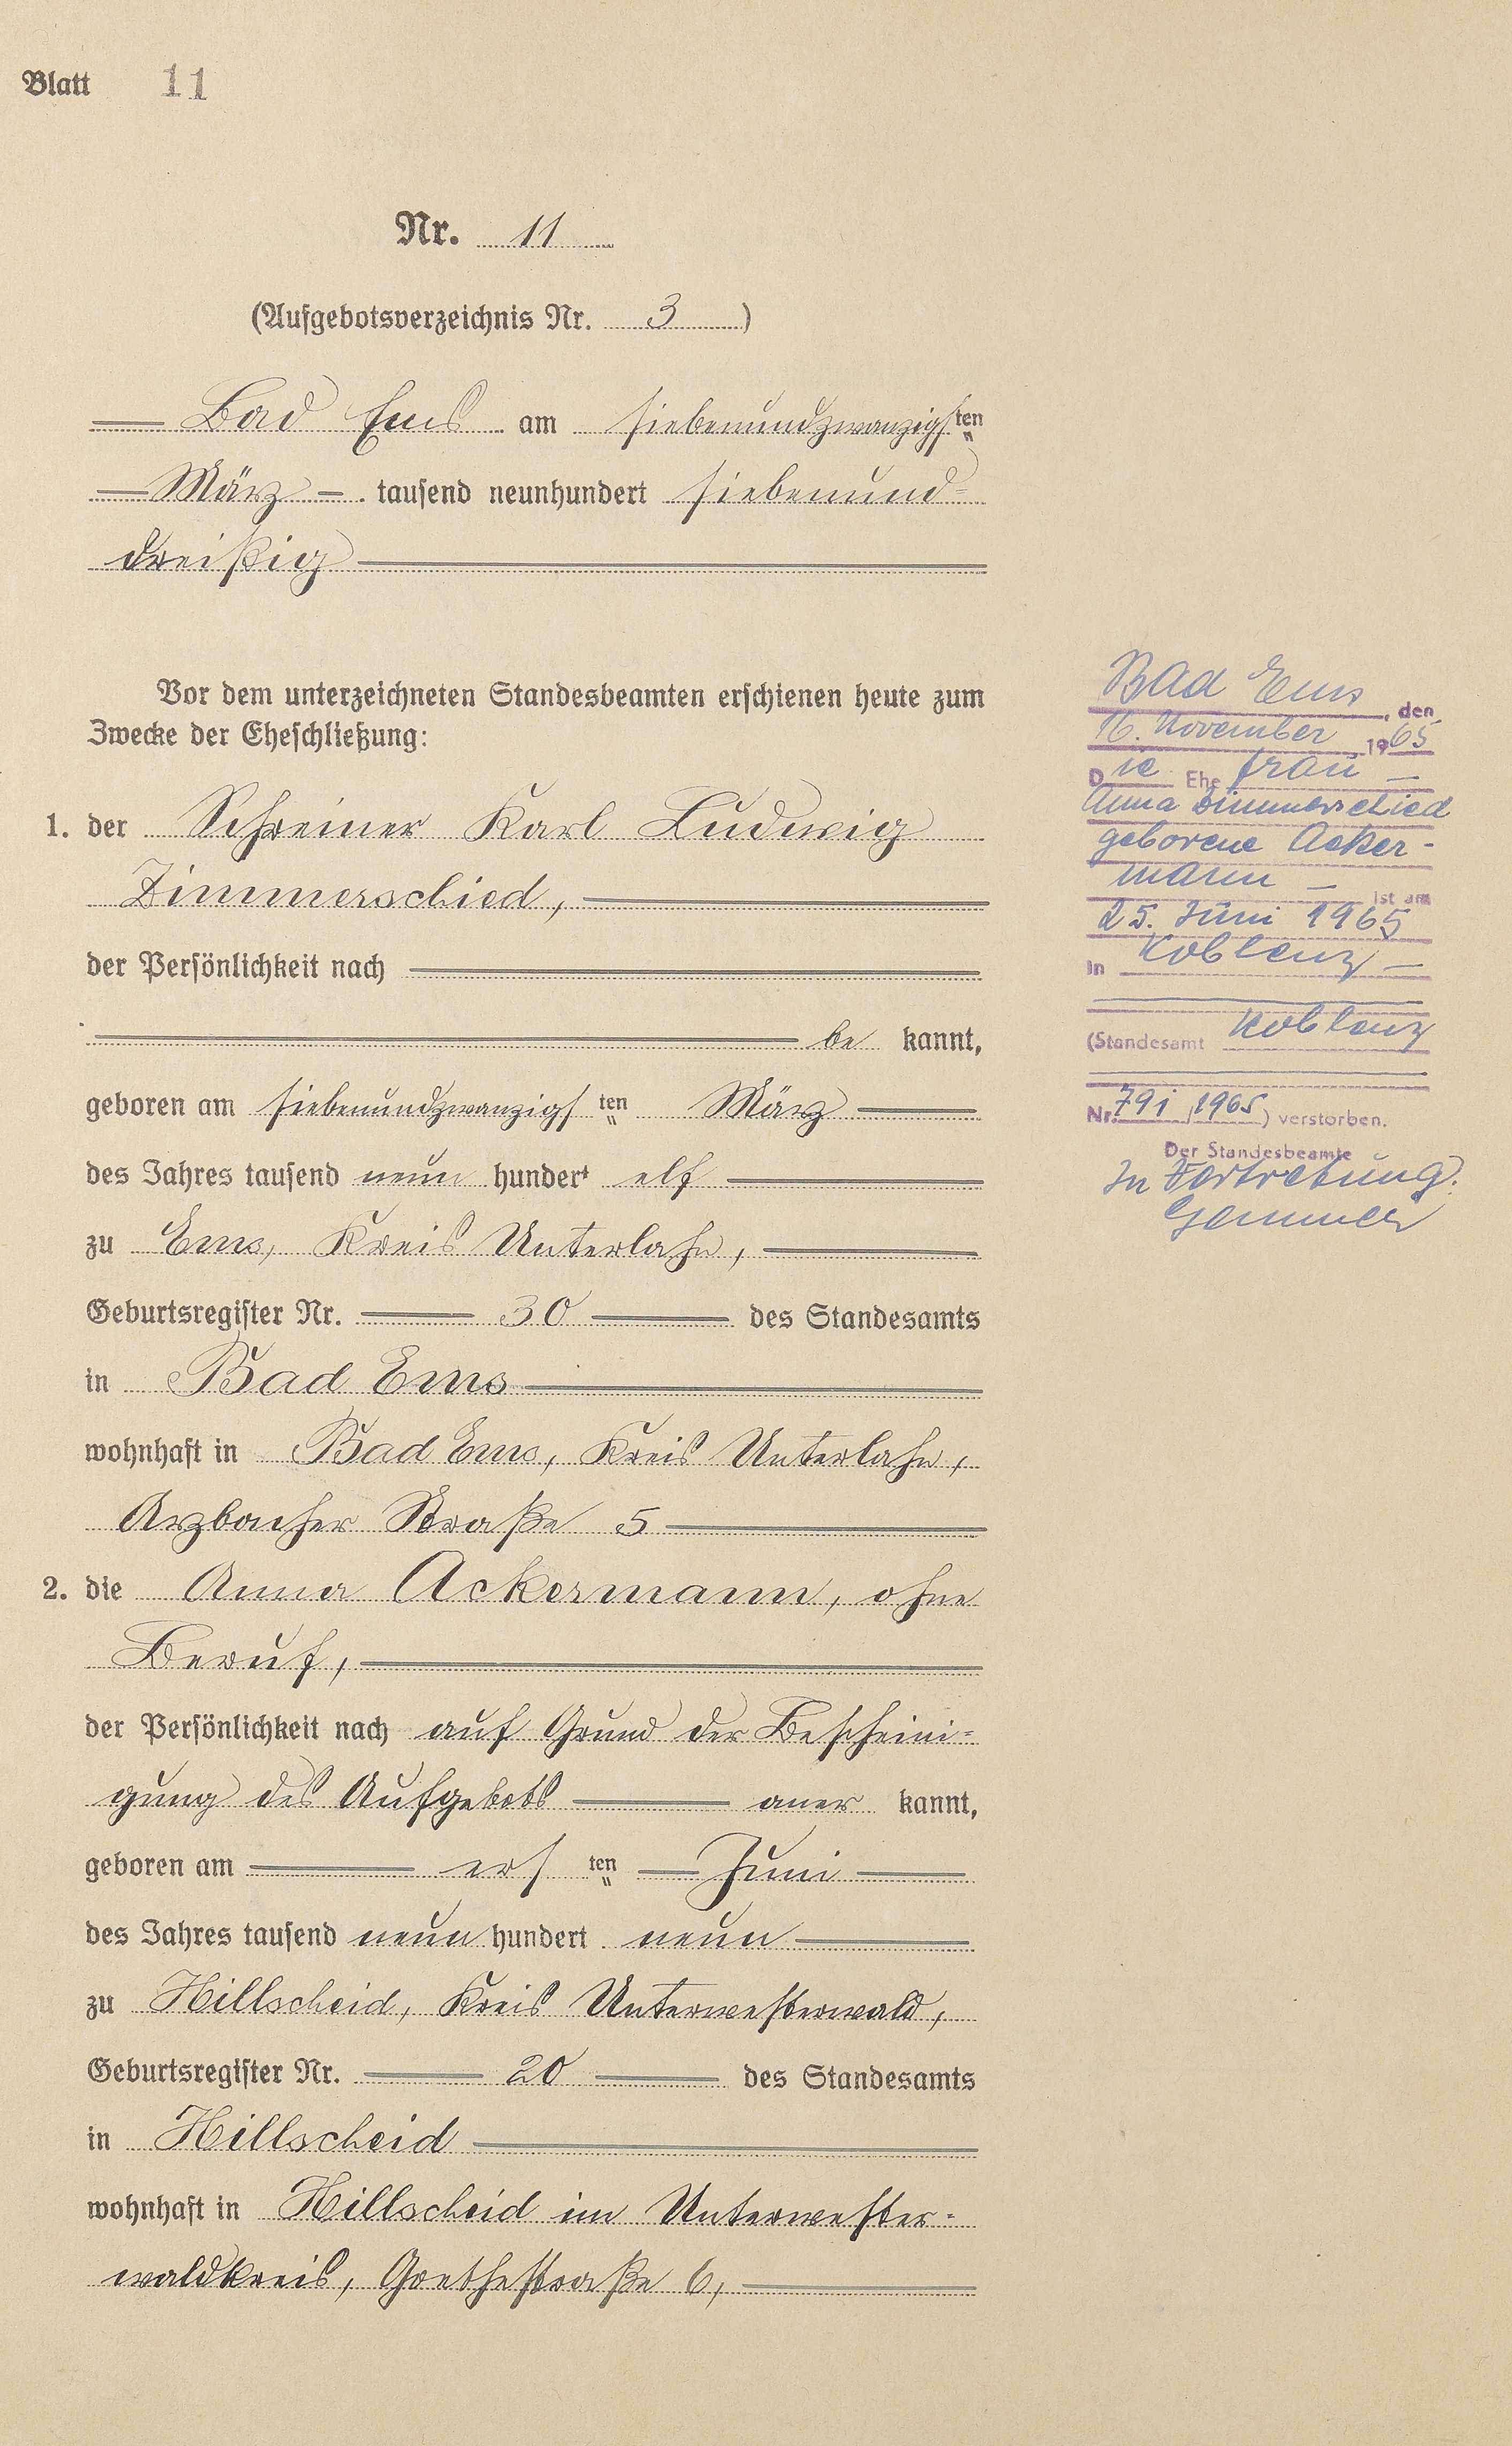 Blatt 11
Nr. 11
(Aufgebotsverzeichnis Nr. 3)
Bad Ems am siebenundzwanzigsten
März tausend neunhundert siebenund-
dreißig
Vor dem unterzeichneten Standesbeamten erschienen heute zum
Zwecke der Eheschließung:
1. der Schreiner Karl Ludwig
Zimmerschied,
der Persönlichkeit nach
be kannt,
geboren am siebenundzwanzigsten März
des Jahres tausend neun hundert elf
zu Ems, Kreis Unterlahn,
Geburtsregister Nr. 30 des Standesamts
in Bad Ems
wohnhaft in Bad Ems, Kreis Unterlahn,
Arzbacher Straße 5
2. die Anna Ackermann, ohne
Beruf,
der Persönlichkeit nach auf Grund der Bescheini-
gung des Aufgebots aner kannt,
geboren am ersten Juni
des Jahres tausend neun hundert neun
zu Hillscheid, Kreis Unterwesterwald,
Geburtsregister Nr. 20 des Standesamts
in Hillscheid
wohnhaft in Hillscheid im Unterwester-
waldkreis, Goethestraße 6,
Bad Ems, den
16. November 1965
Die Ehefrau
Anna Zimmerschied
geborene Acker-
mann ist am
25. Juni 1965
in Koblenz
(Standesamt Koblenz
Nr. 791/1965) verstorben.
Der Standesbeamte
In Vertretung: